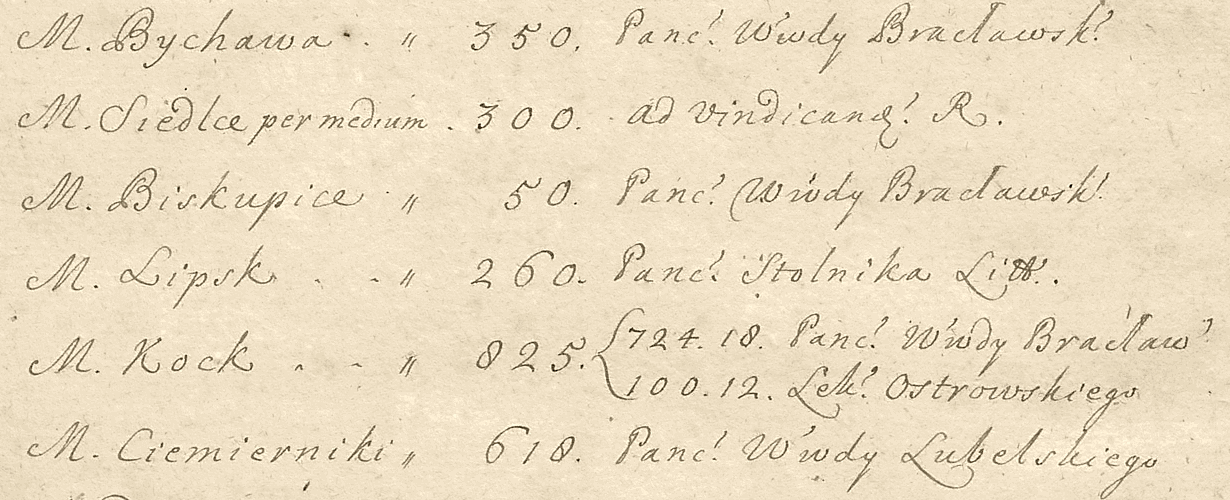 M. Bychawa . " 350. Panc! Wwdy Bracławsk!
M. Siedlce per medium . 300. ad vindicand! R.
M. Biskupice " 50. Panc! Wwdy Bracławsk!
M. Lipsk . - " 260. Panc! Stolnika Litt.
M. Kock . - " 825. { 724. 18. Panc! Wwdy Bracław
100. 12. Lek! Ostrowskiego
M. Ciemierniki " 618. Panc! Wwdy Lubelskiego